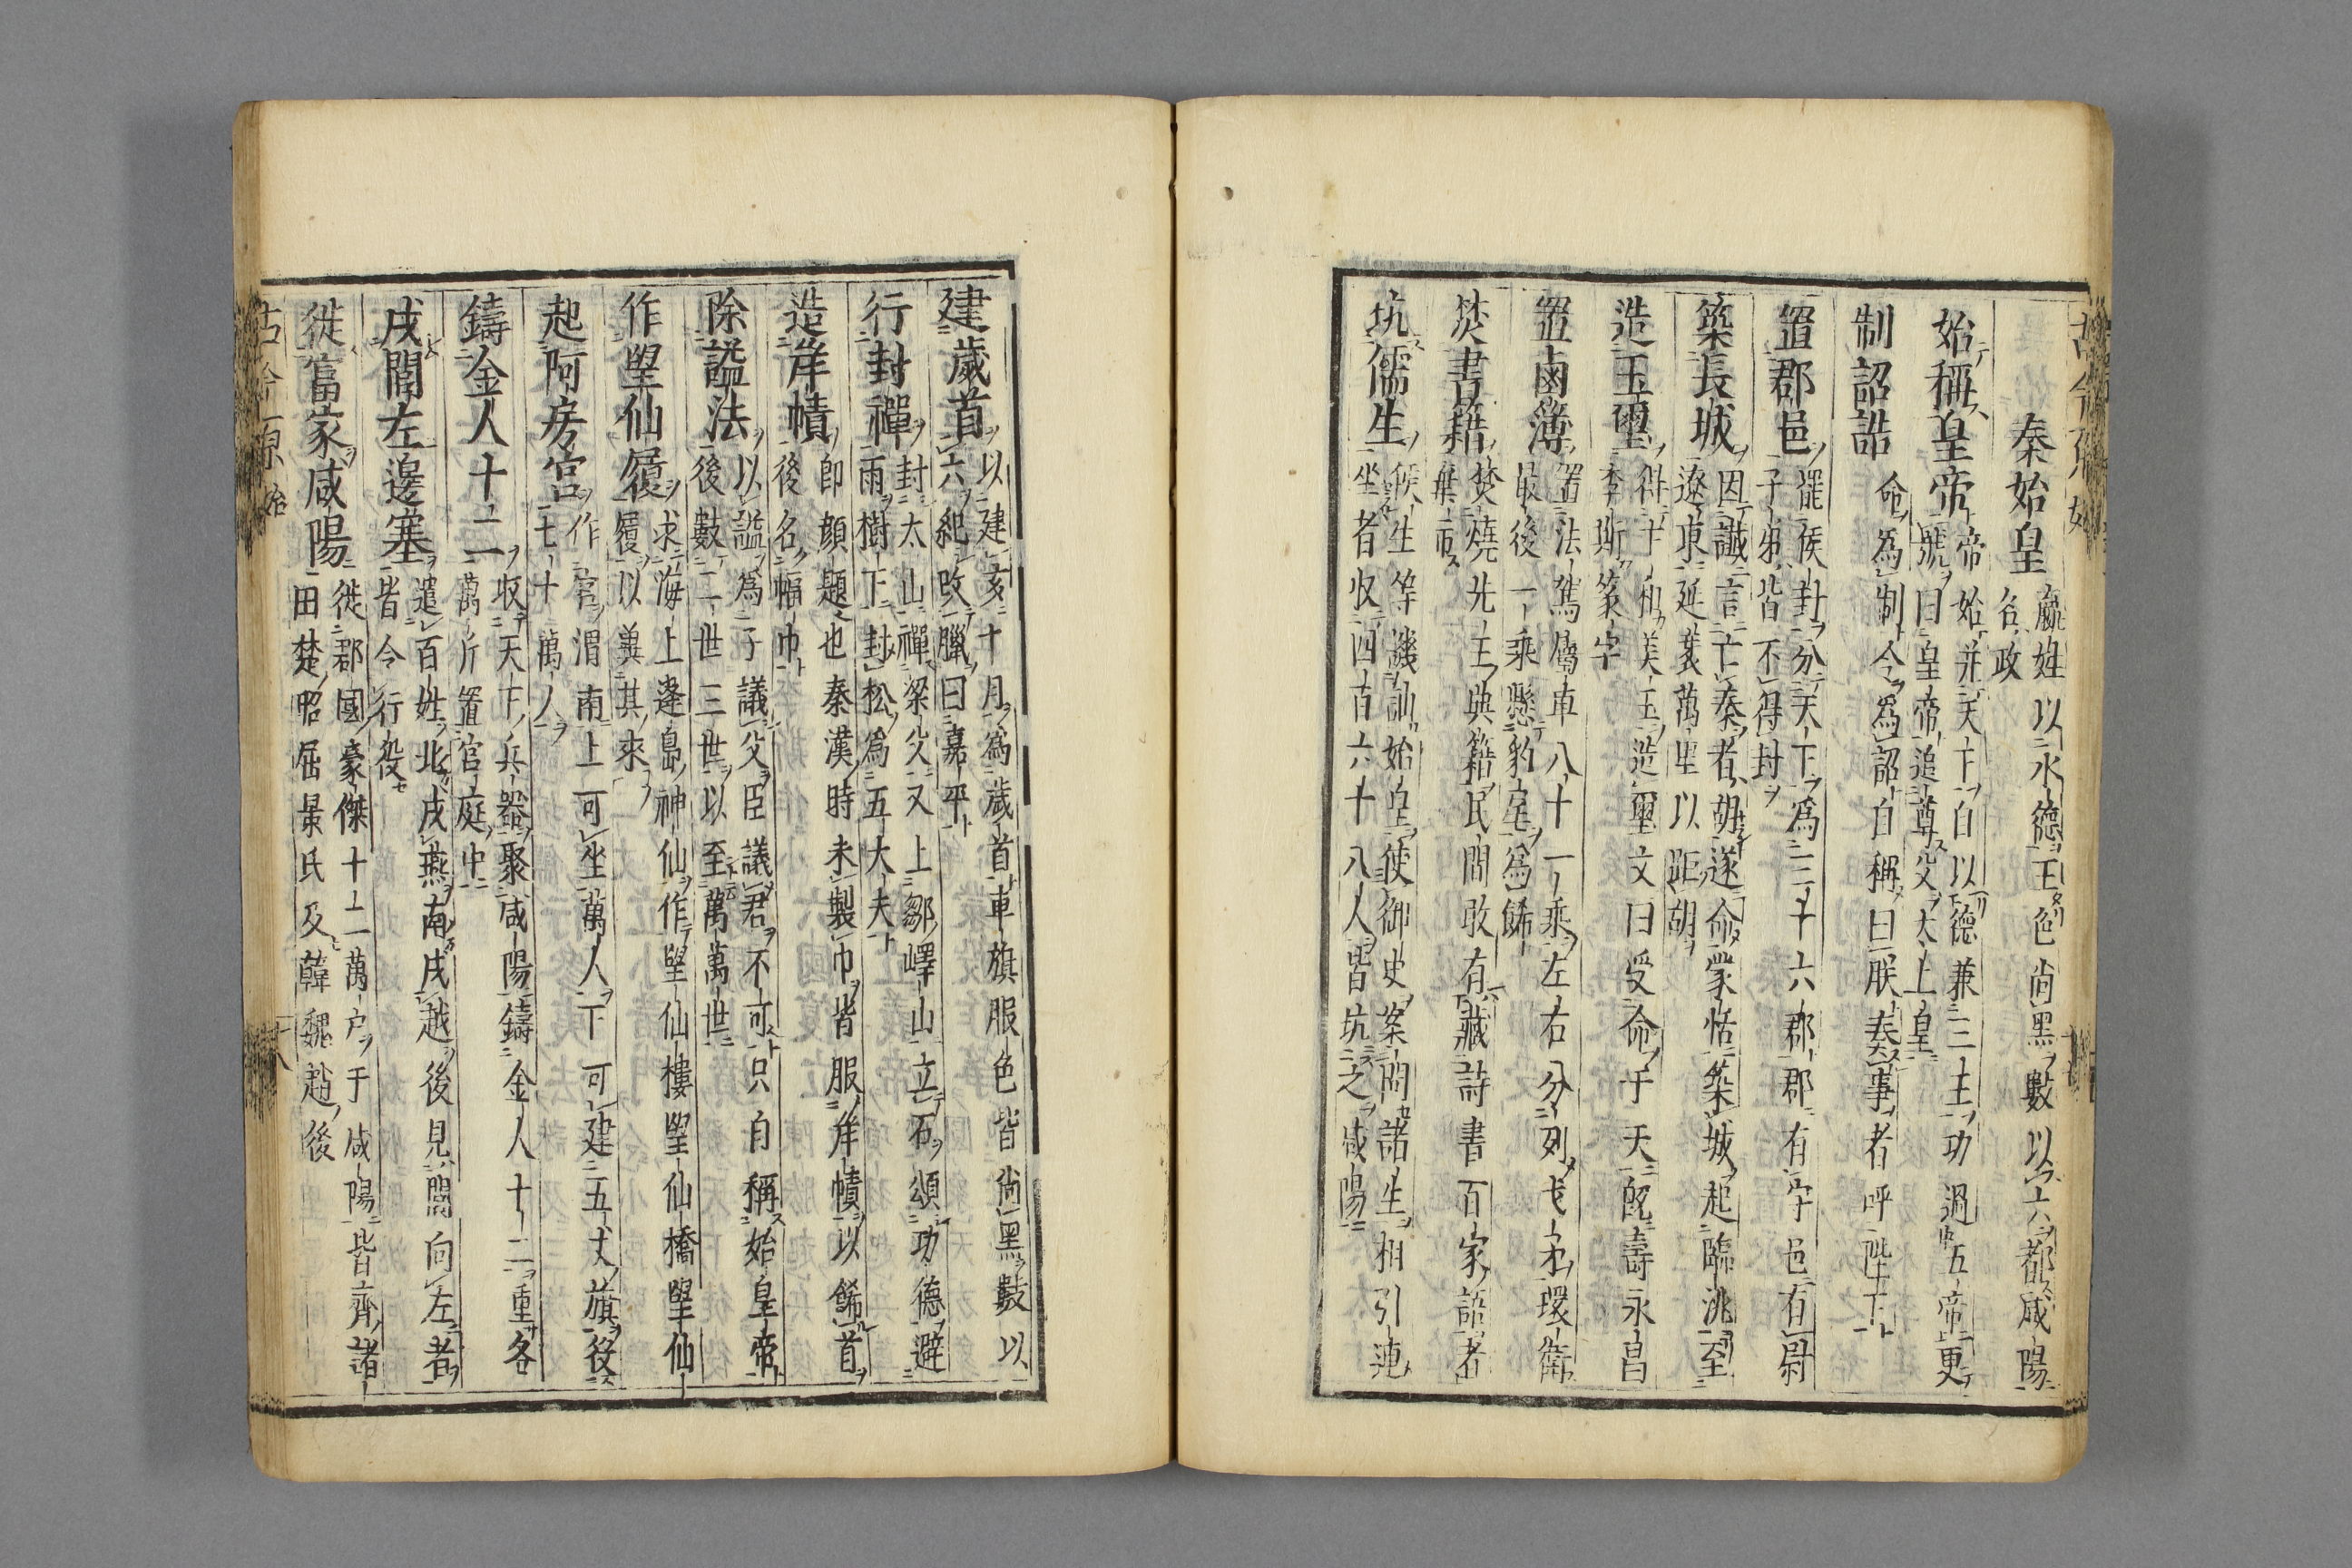 秦始皇 嬴姓名政 以水德王色尚黑數以六都咸陽
始稱皇帝 帝始并天下自以德兼三王功過五帝更
號曰皇帝追尊父太上皇
制詔誥 命爲制令爲詔自稱曰朕奏事者呼陛下
置郡邑 罷侯封分天下爲三十六郡郡有守邑有尉
子弟皆不得封
築長城 因讖言亡秦者胡遂命蒙恬築城起臨洮至
遼東延袤萬里以距胡
造玉璽 得卞和美玉造璽文曰受命于天既壽永昌
李斯篆字
置鹵簿 置法駕屬車八十一乘左右分列戈矛環衛
最後一乘懸豹尾爲餙
焚書籍 焚燒先王典籍民間敢有藏詩書百家語者
棄市
坑儒生 候生等譏訕始皇使御史案問諸生相引連
坐者收四百六十八人皆坑之咸陽
建歲首 以建亥十月爲歲首車旗服色皆尚黑數以
六紀改臘曰嘉平
行封禪 封太山禪梁父又上鄒嶧山立石頌功德避
雨樹下封松爲五大夫
造岸幘 卽顔題也秦漢時未製巾皆服岸幘以餙首
後名幅巾
除謚法 以謚爲子議父臣議君不可只自稱始皇帝
後數二世三世以至萬萬世
作望仙履 求海上逢島神仙作望仙樓望仙橋望仙
履以冀其來
起阿房宮 作宮渭南上可坐萬人下可建五丈旗役
七十萬人
鑄金人十二 收天下兵器聚咸陽鑄金人十二重各
萬斤置宮庭中
戍閭左邊塞 遣百姓北戍燕南戍越後見閭向左者
皆令行役
徙富家咸陽 徙郡國豪傑十二萬戶于咸陽皆齊諸
田楚昭屈景氏及韓魏趙後
古今原始
十八